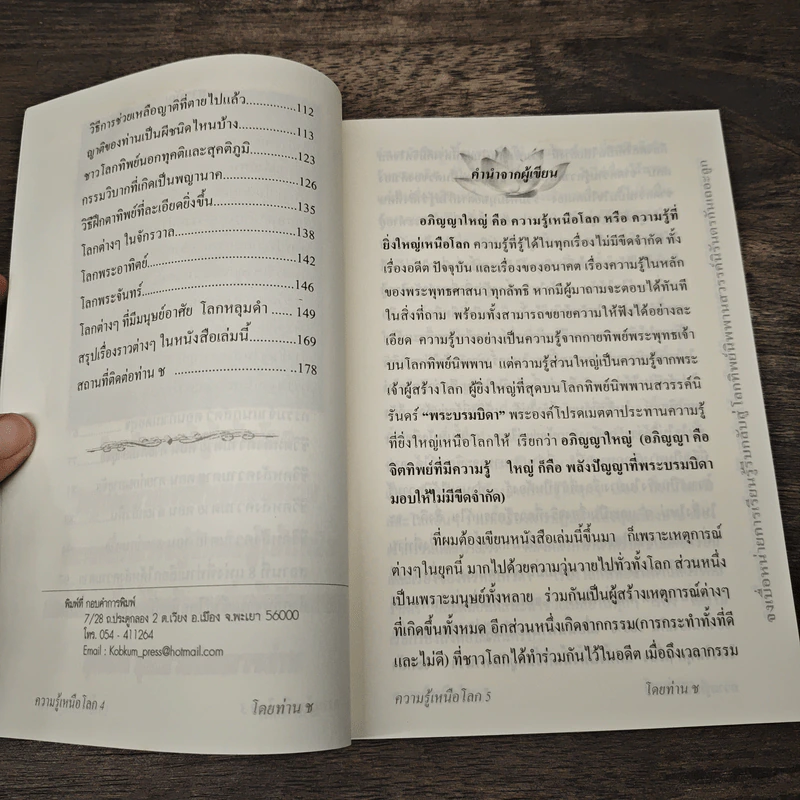 วิธีการช่วยเหลือญาติที่ตายไปแล้ว...............112
ญาติของท่านเป็นผีชนิดไหนบ้าง................113
ชาวโลกทิพย์นอกทุคติและสุคติภูมิ............123
กรรมวิบากที่เกิดเป็นพญานาค...................126
วิธีฝึกตาทิพย์ที่ละเอียดยิ่งขึ้น.....................135
โลกต่างๆ ในจักรวาล................................138
โลกพระอาทิตย์........................................142
โลกพระจันทร์..........................................146
โลกต่างๆ ที่มีมนุษย์อาศัย โลกหลุมดำ ..... 149
สรุปเรื่องราวต่างๆ ในหนังสือเล่มนี้............169
สถานที่ติดต่อท่าน ช ........................ ..178
พิมพ์ที่ กอบคำการพิมพ์
7/28 ถ.ประตูกลอง 2 ต.เวียง อ.เมือง จ.พะเยา 56000
โทร. 054 - 411264
Email : Kobkum_press@hotmail.com
ความรู้เหนือโลก 4 โดยท่าน ช
คำนำจากผู้เขียน
อภิญญาใหญ่ คือ ความรู้เหนือโลก หรือ ความรู้ที่
ยิ่งใหญ่เหนือโลก ความรู้ที่รู้ได้ในทุกเรื่องไม่มีขีดจำกัด ทั้ง
เรื่องอดีต ปัจจุบัน และเรื่องของอนาคต เรื่องความรู้ในหลัก
ของพระพุทธศาสนา ทุกลัทธิ หากมีผู้มาถามจะตอบได้ทันที
ในสิ่งที่ถาม พร้อมทั้งสามารถขยายความให้ฟังได้อย่างละ
เอียด ความรู้บางอย่างเป็นความรู้จากกายทิพย์พระพุทธเจ้า
บนโลกทิพย์นิพพาน แต่ความรู้ส่วนใหญ่เป็นความรู้จากพระ
เจ้าผู้สร้างโลก ผู้ยิ่งใหญ่ที่สุดบนโลกทิพย์นิพพานสวรรค์นิ
รันดร์ “พระบรมบิดา” พระองค์โปรดเมตตาประทานความรู้
ที่ยิ่งใหญ่เหนือโลกให้ เรียกว่า อภิญญาใหญ่ (อภิญญา คือ
จิตทิพย์ที่มีความรู้ ใหญ่ ก็คือ พลังปัญญาที่พระบรมบิดา
มอบให้ไม่มีขีดจำกัด)
ที่ผมต้องเขียนหนังสือเล่มนี้ขึ้นมา ก็เพราะเหตุการณ์
ต่างๆในยุคนี้ มากไปด้วยความวุ่นวายไปทั่วทั้งโลก ส่วนหนึ่ง
เป็นเพราะมนุษย์ทั้งหลาย ร่วมกันเป็นผู้สร้างเหตุการณ์ต่างๆ
ที่เกิดขึ้นทั้งหมด อีกส่วนหนึ่งเกิดจากกรรม(การกระทำทั้งที่ดี
และไม่ดี) ที่ชาวโลกได้ทำร่วมกันไว้ในอดีต เมื่อถึงเวลากรรม
ความรู้เหนือโลก 5 โดยท่าน ช